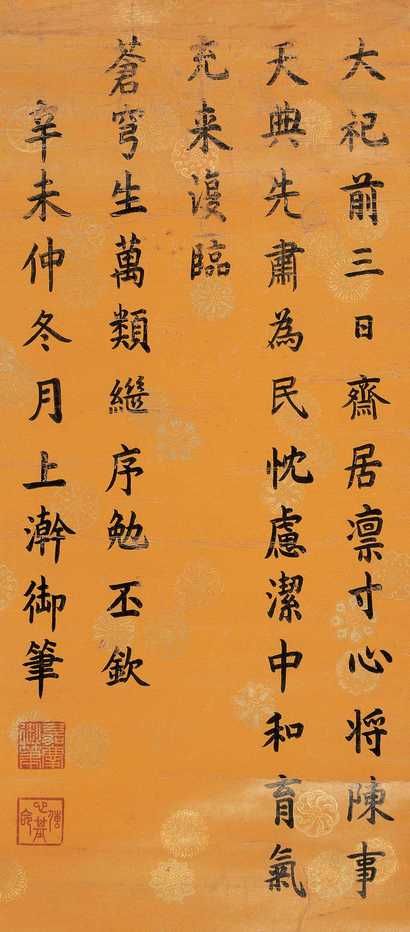 大祀前三日齋居凛寸心将陳事
天典先肅為民忱慮潔中和育氣
充来復臨
蒼穹生萬類繼序勉丕欽
辛未仲冬月上澣御筆
嘉慶御筆